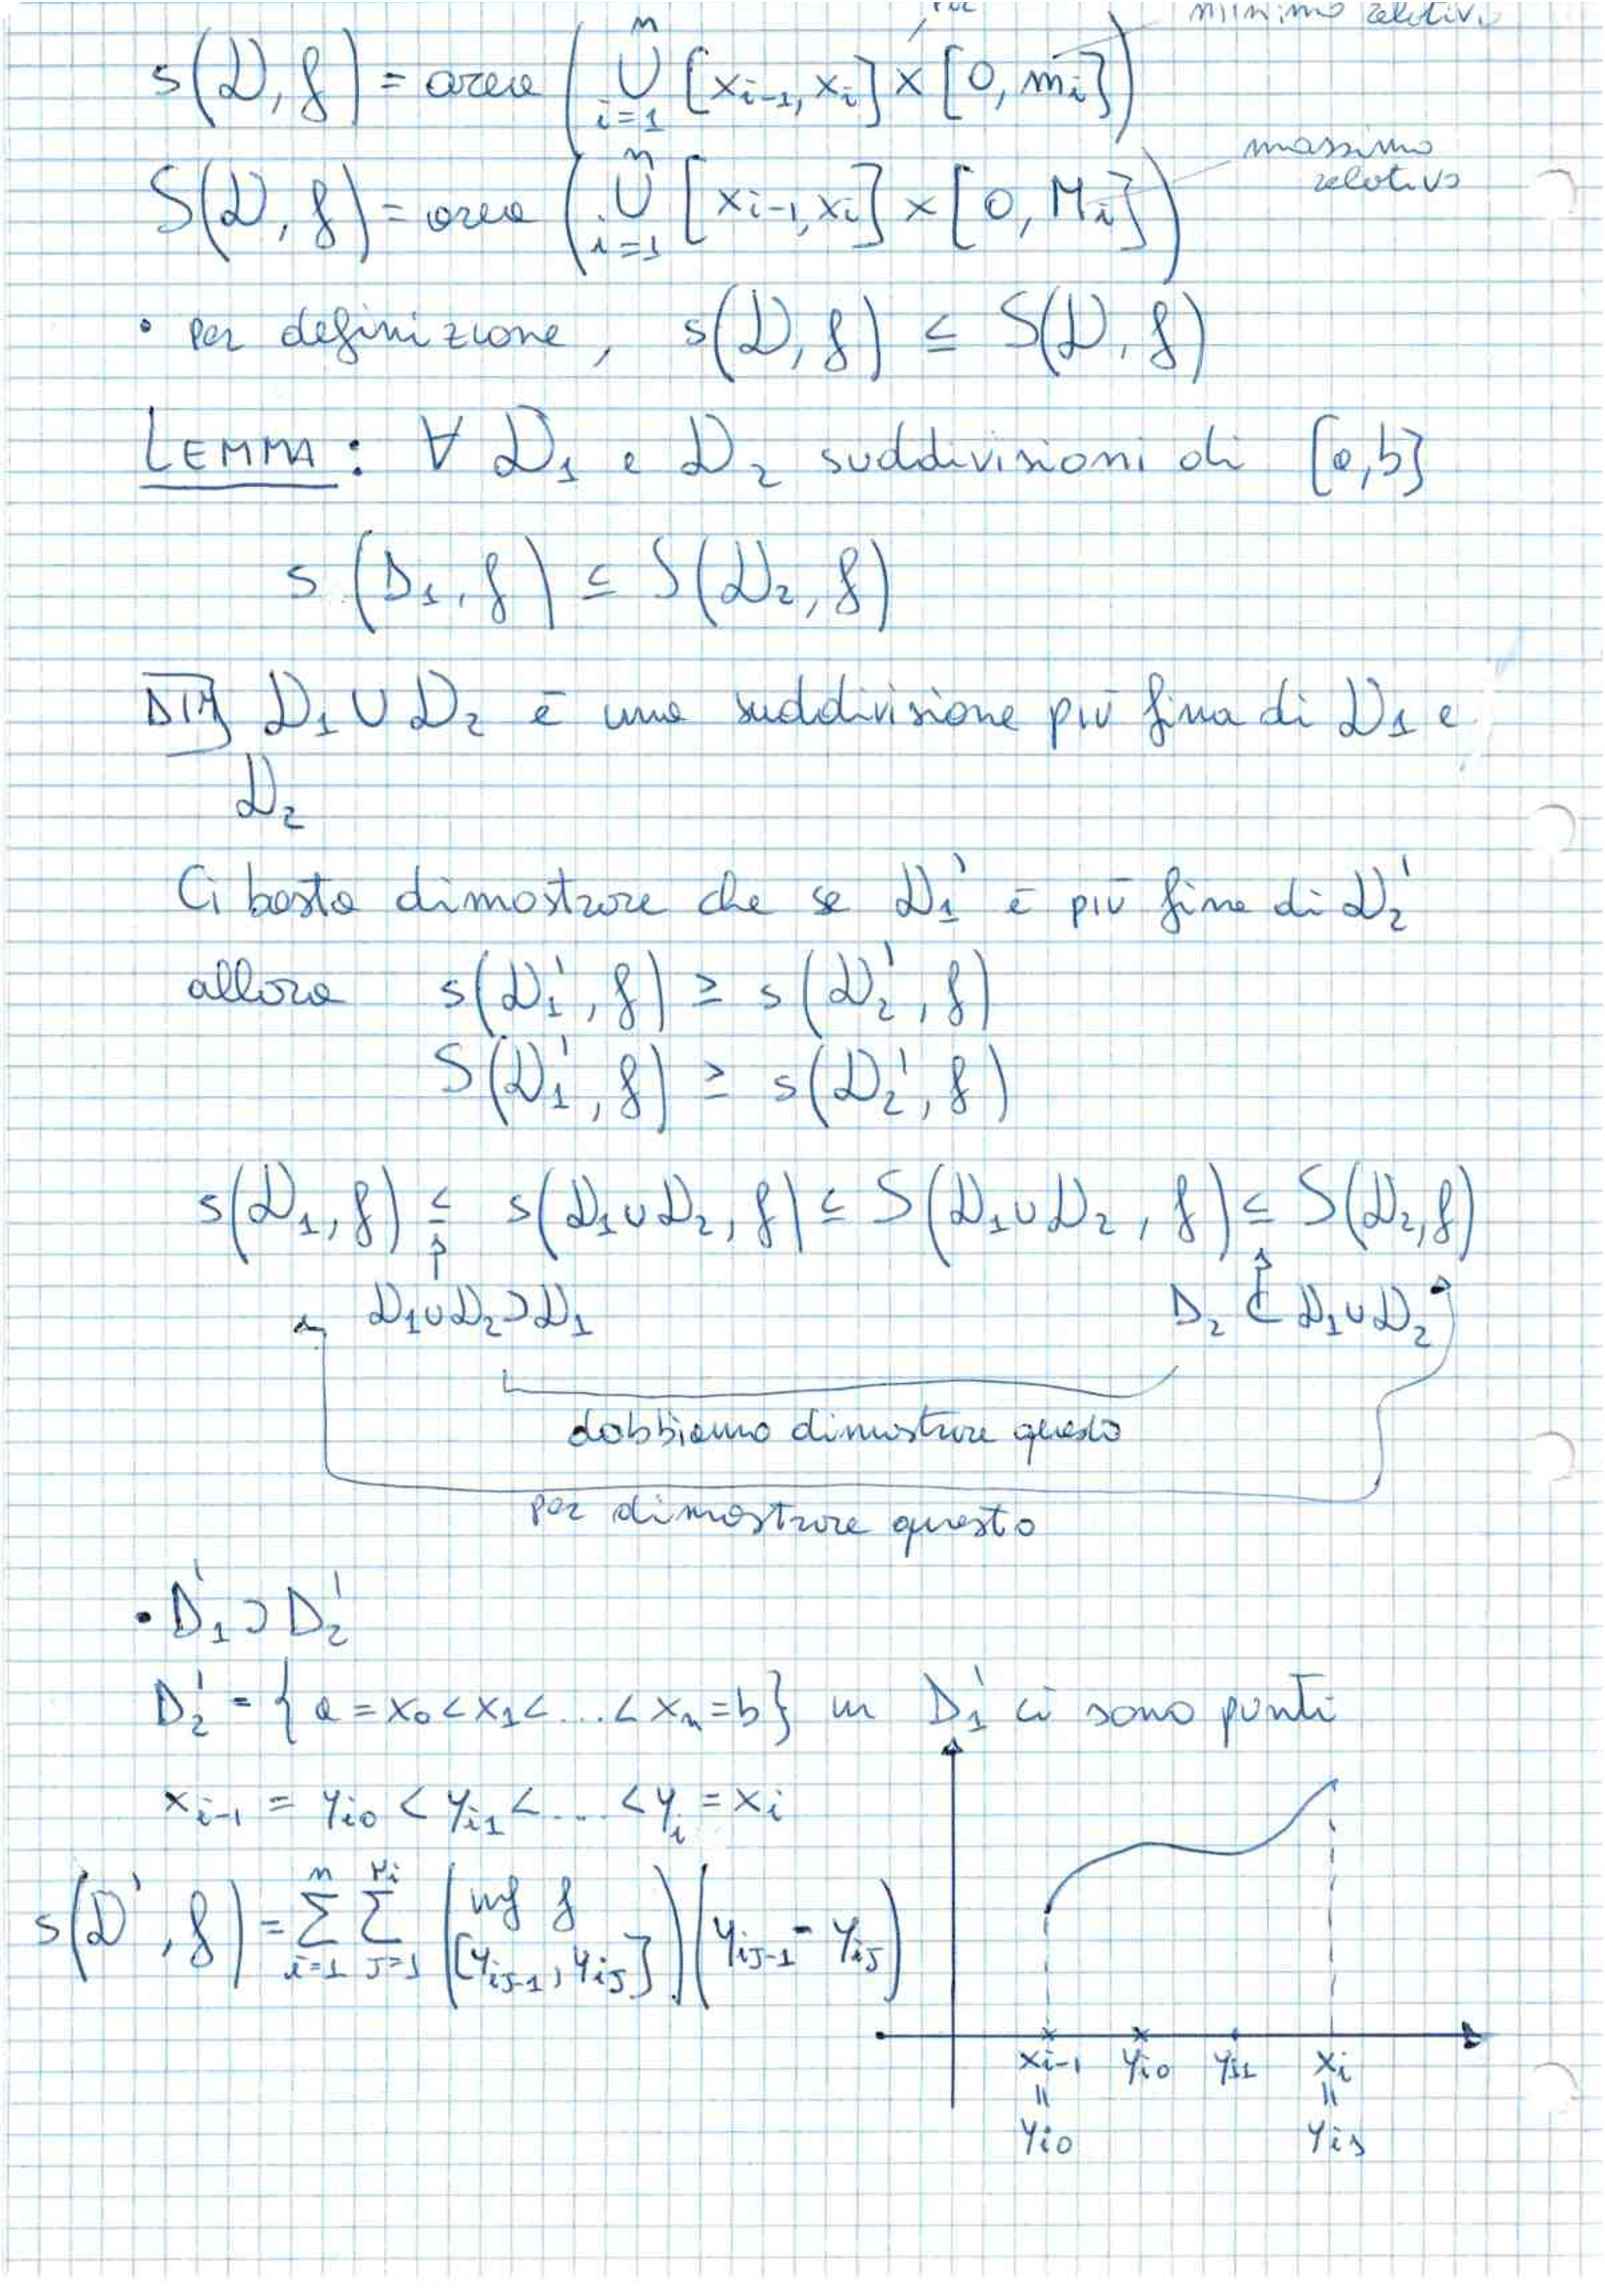 minimo relativo
s(D, f) = area (⋃_{i=1}^{n} [x_{i-1}, x_i] × [0, m_i])
massimo relativo
S(D, f) = area (⋃_{i=1}^{n} [x_{i-1}, x_i] × [0, M_i])
• per definizione, s(D, f) ≤ S(D, f)
LEMMA: ∀ D_1 e D_2 suddivisioni di [a,b]
s (D_1, f) ≤ S(D_2, f)
DIM] D_1 ∪ D_2 è una suddivisione più fina di D_1 e
D_2
Ci basta dimostrare che se D_1' è più fine di D_2'
allora s(D_1', f) ≥ s(D_2', f)
S(D_1', f) ≥ s(D_2', f)
s(D_1, f) ≤ s(D_1 ∪ D_2, f) ≤ S(D_1 ∪ D_2, f) ≤ S(D_2, f)
D_1 ∪ D_2 ⊃ D_1 D_2 ⊂ D_1 ∪ D_2
dobbiamo dimostrare questo
per dimostrare questo
• D_1' ⊃ D_2'
D_2' = {a = x_0 < x_1 < ... < x_n = b} in D_1' ci sono punti
x_{i-1} = y_{i0} < y_{i1} < .... < y_i = x_i
s(D', f) = ∑_{i=1}^{n} ∑_{J=1}^{r_i} (inf f [y_{iJ-1}, y_{iJ}]) (y_{iJ-1} - y_{iJ})
x_{i-1} y_{i0} y_{i1} x_i
= =
y_{i0} y_{is}